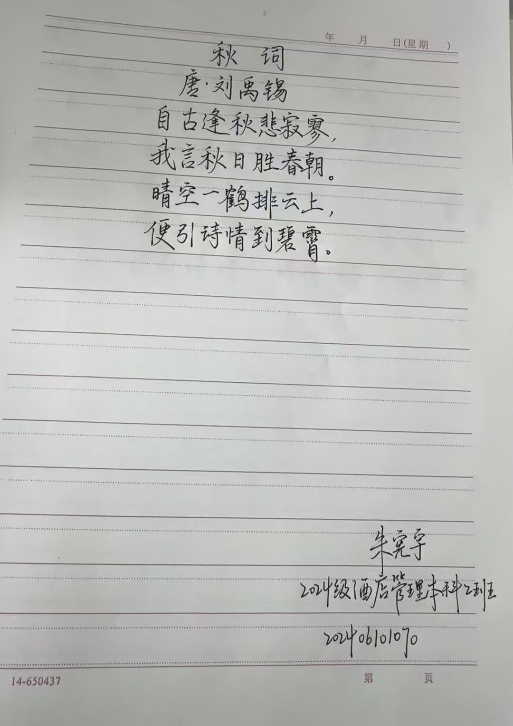 年 月 日(星期 )
秋 词
唐·刘禹锡
自古逢秋悲寂寥,
我言秋日胜春朝。
晴空一鹤排云上,
便引诗情到碧霄。
朱宪宇
2024级酒店管理本科2班
202406101070
14-650437
第 页